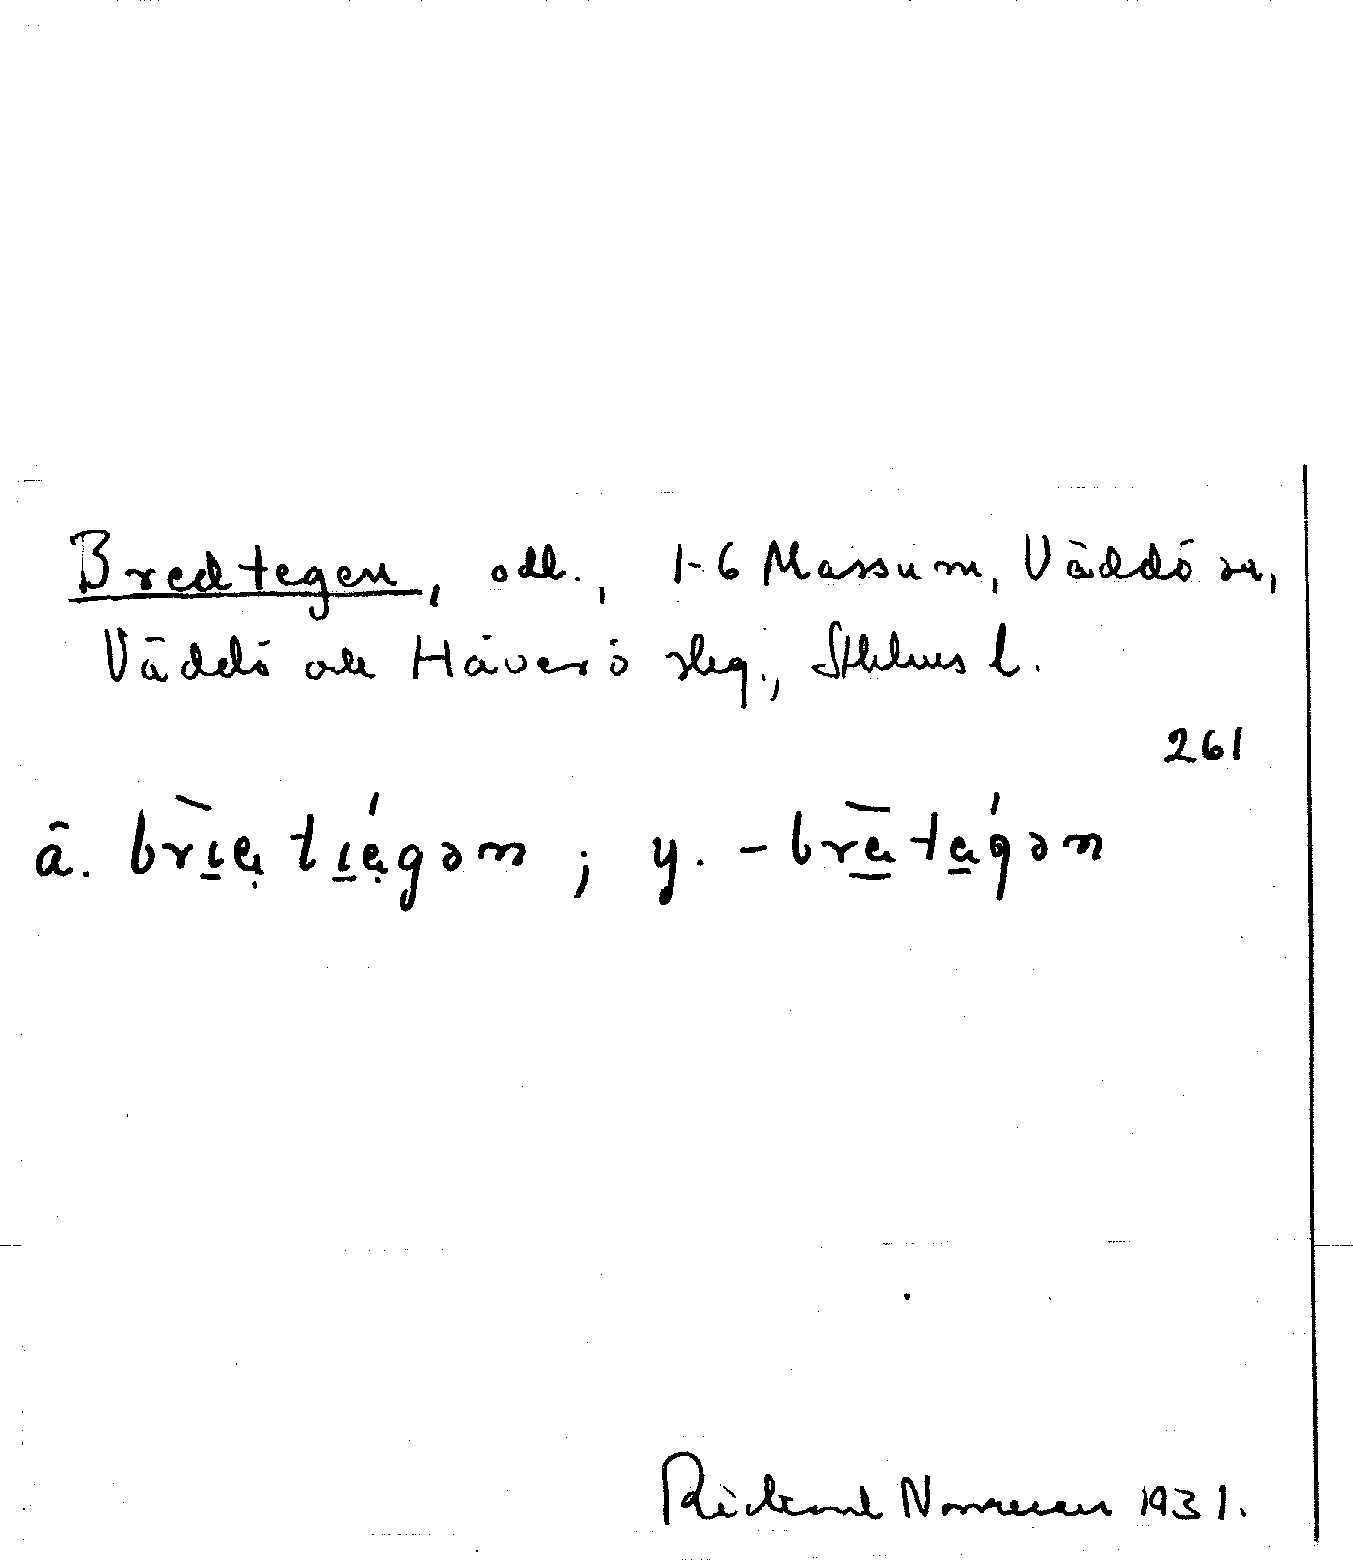 Bredtegen, odl., 1-6 Massum, Väddö sn,
Väddö och Häverö skg., Sthlms l.
261
ä. brìe̤ tịé̤gən ; y. - brè̱té̱gən
Rickard Norrman 1931.